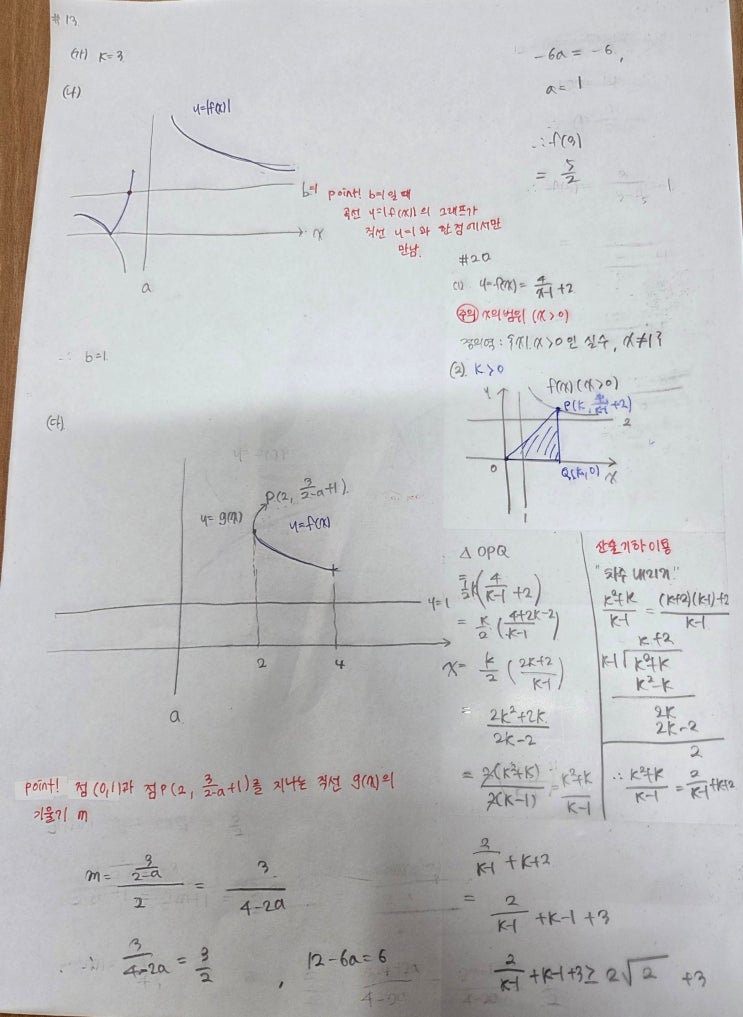 #13.
(가) k=3
(나)
y=|f(x)|
b=1
x
a
point! b=1일 때
곡선 y=|f(x)|의 그래프가
직선 y=1과 한 점에서만
만남.
∴ b=1.
(다)
y=g(x)
P(2, 3/(2-a)+1).
y=f(x)
y=1
x
2
4
a
point! 점 (0,1)과 점 P(2, 3/(2-a)+1)를 지나는 직선 g(x)의
기울기 m
m = (3/(2-a))/2 = 3/(4-2a)
∴ 3/(4-2a) = 3/2 , 12-6a=6
-6a=-6,
a=1
∴ f(3)
= 5/2
#20
(1) y=f(x)= 4/(x-1) +2
주의 x의 범위 (x>0)
정의역 : {x|x>0인 실수, x≠1}
(2). k>0
y
f(x)(x>0)
P(k, 4/(k-1)+2)
2
0
Q(k,0)
x
1
△OPQ
= 1/2 k(4/(k-1) +2)
= k/2 ((4+2k-2)/(k-1))
= k/2 ((2k+2)/(k-1))
= (2k²+2k)/(2k-2)
= 2(k²+k)/2(k-1) = (k²+k)/(k-1)
산술기하 이용
"차수 내리기!"
(k²+k)/(k-1) = ((k+2)(k-1)+2)/(k-1)
k+2
k-1 k²+k
k²-k
2k
2k-2
2
∴ (k²+k)/(k-1) = 2/(k-1) +k+2
2/(k-1) +k+2
= 2/(k-1) +k-1+3
2/(k-1) +k-1+3 ≥ 2√2 +3